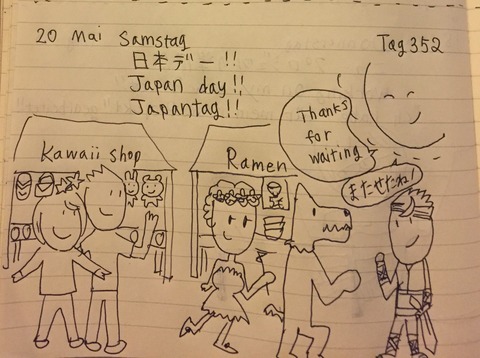 20 Mai Samstag
Tag 352
日本デー!!
Japan day!!
Japantag!!
Thanks
for
waiting
Kawaii shop
Ramen
またせたね!